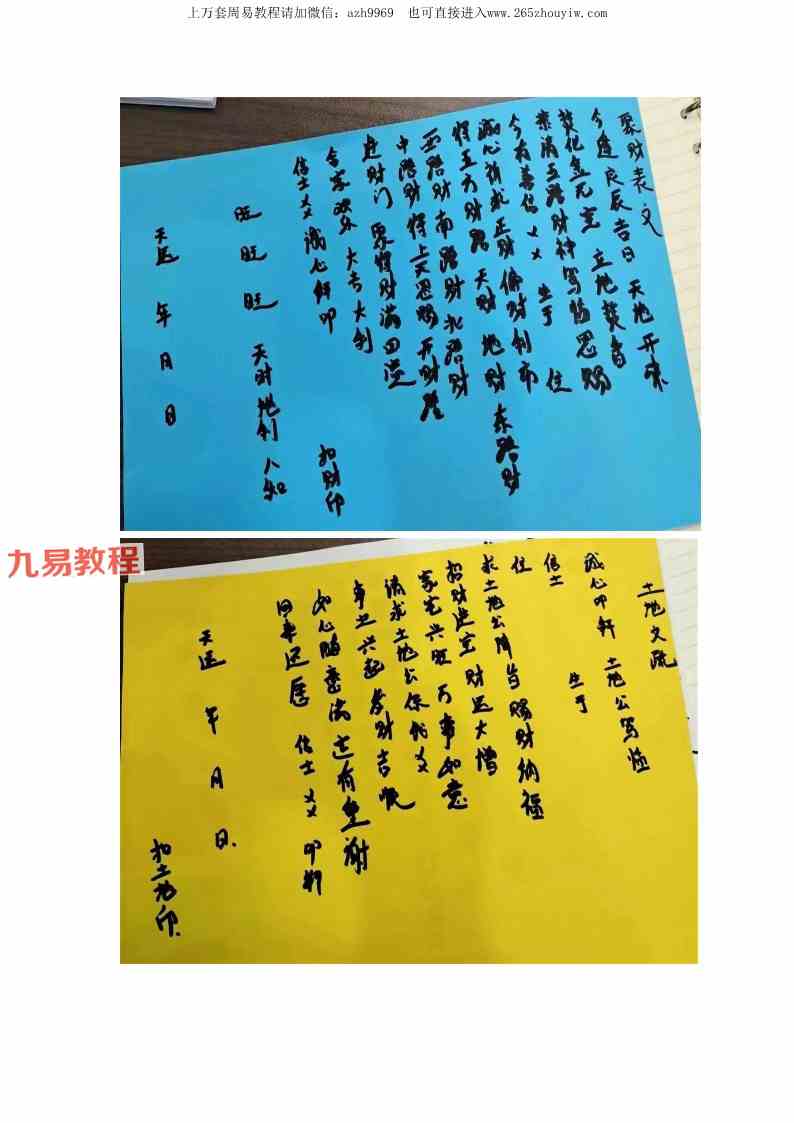 上万套周易教程请加微信：azh9969 也可直接进入www.265zhouyiw.com
聚财表文
今逢良辰吉日 天地开
焚化金元宝 立地焚香
奉请五路财神驾临恩赐
今有善信 ㄨㄨ 生于 住
诚心祈求正财偏财利市
得五方财路 天财 地财 东路财
西路财南路财北路财
中路财 得上天恩赐开财路
进财门 聚得财满
合家欢乐 大吉大利
信士ㄨㄨ诚心拜叩
扣财印
旺旺旺 天时地利人和
天运 年 月 日
九易教程
土地文疏
诚心叩拜 土地公驾临
信士 生于
住
求土地公降吉赐财纳福
招财进宝 财运大增
家宅兴旺 万事如意
请求土地公保佑ㄨㄨ
事业兴起 发财吉
如心随意 必有重谢
回来还愿 信士ㄨㄨ 叩拜
天运 年 月 日
扣土地印